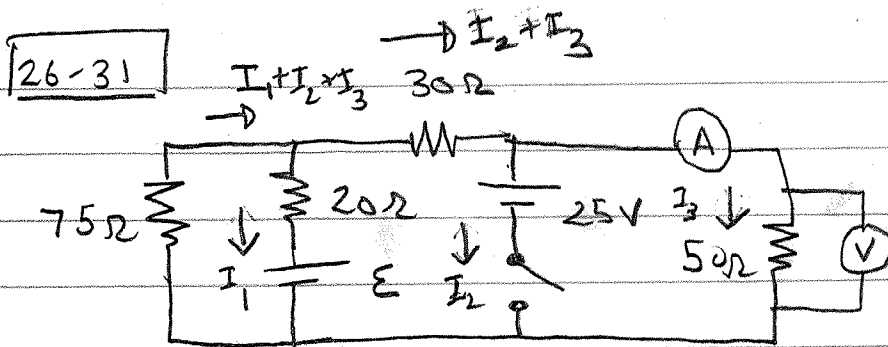 26-31
→ I₂+I₃
I₁+I₂+I₃ 30Ω
→
A
75Ω
20Ω
25V
I₃
50Ω
V
I₁
ε
I₂